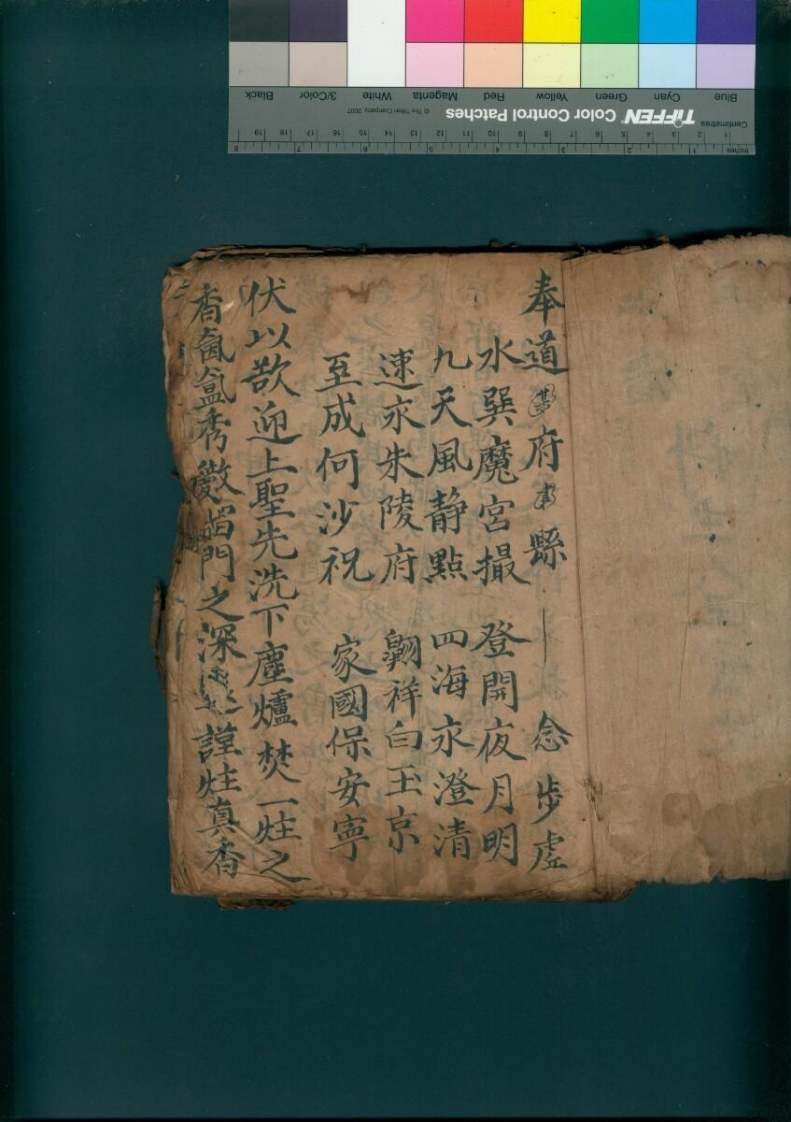 奉道府縣 念步虛
水巽魔宮撮 登開夜月明
九天風静點 四海永澄清
速永朱陵府 翱祥白玉京
至成何沙祝 家國保安寧
伏以欲迎上聖先洗下塵爐焚一炷之
香氤氳秀 門之深 謹炷真香
Blue Cyan Green Yellow Red Magenta White 3/Color Black
TIFFEN Color Control Patches © The Tiffen Company, 2007
Centimetres 1 2 3 4 5 6 7 8 9 10 11 12 13 14 15 16 17 18 19
Inches 1 2 3 4 5 6 7 8